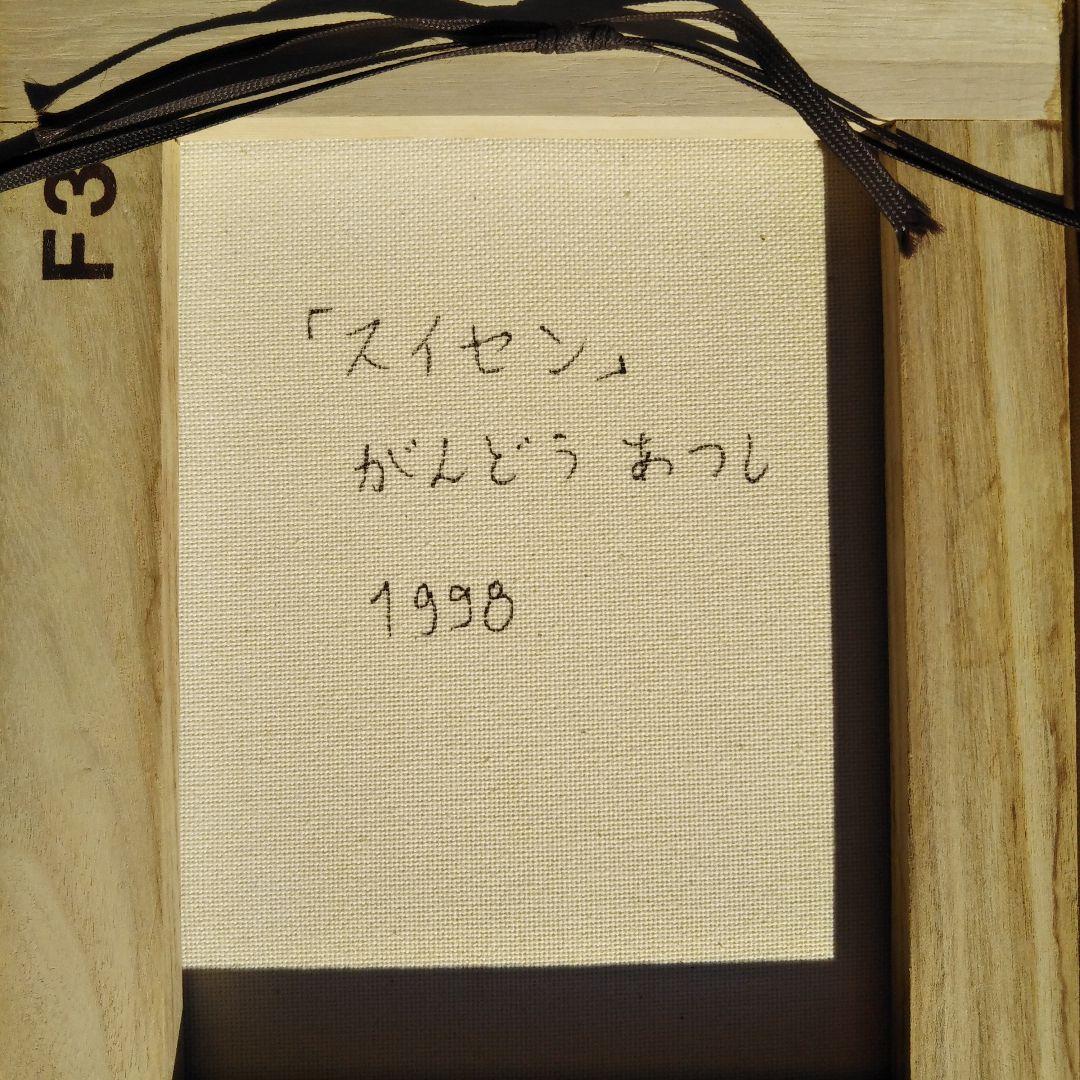 F3
「スイセン」
がんどう あつし
1998